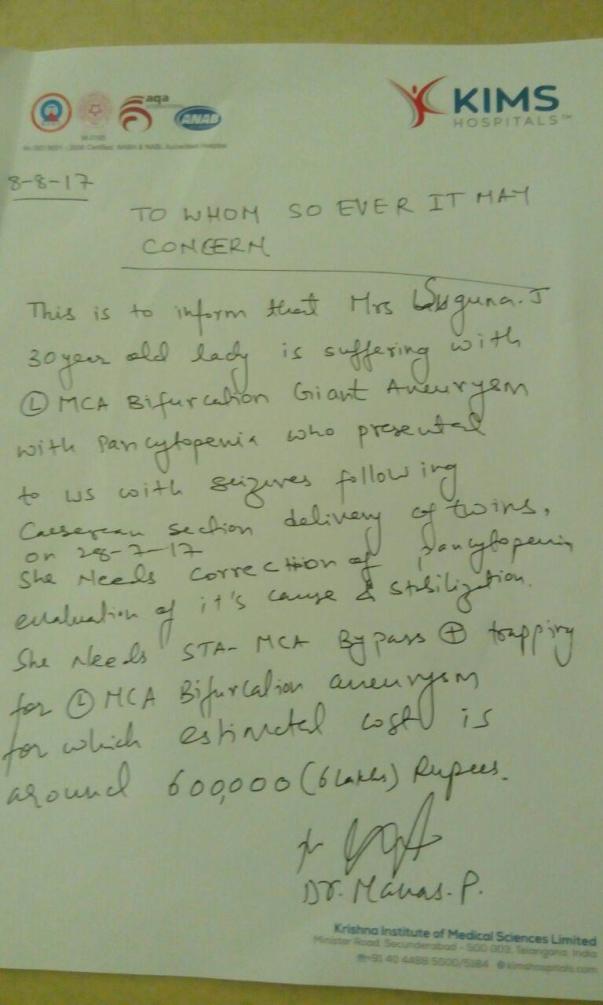 aqa
ANAB
KIMS
HOSPITALS™
8-8-17
TO WHOM SO EVER IT MAY
CONCERN
This is to inform that Mrs Suguna. J
30 year old lady is suffering with
Ⓛ MCA Bifurcation Giant Aneurysm
with Pancytopenia who presented
to us with seizures following
Caeserean section delivery of twins,
on 28-7-17
She Needs correction of pancytopenia
evaluation of it's cause & stabilization.
She Needs STA-MCA Bypass ⊕ trapping
for Ⓛ MCA Bifurcation aneurysm
for which estimated cost is
around 600,000 (6 Lakhs) Rupees.
Dr. Manas. P.
Krishna Institute of Medical Sciences Limited
Minister Road, Secunderabad - 500 003, Telangana, India
+91 40 4488 5000/5184 kimshospitals.com